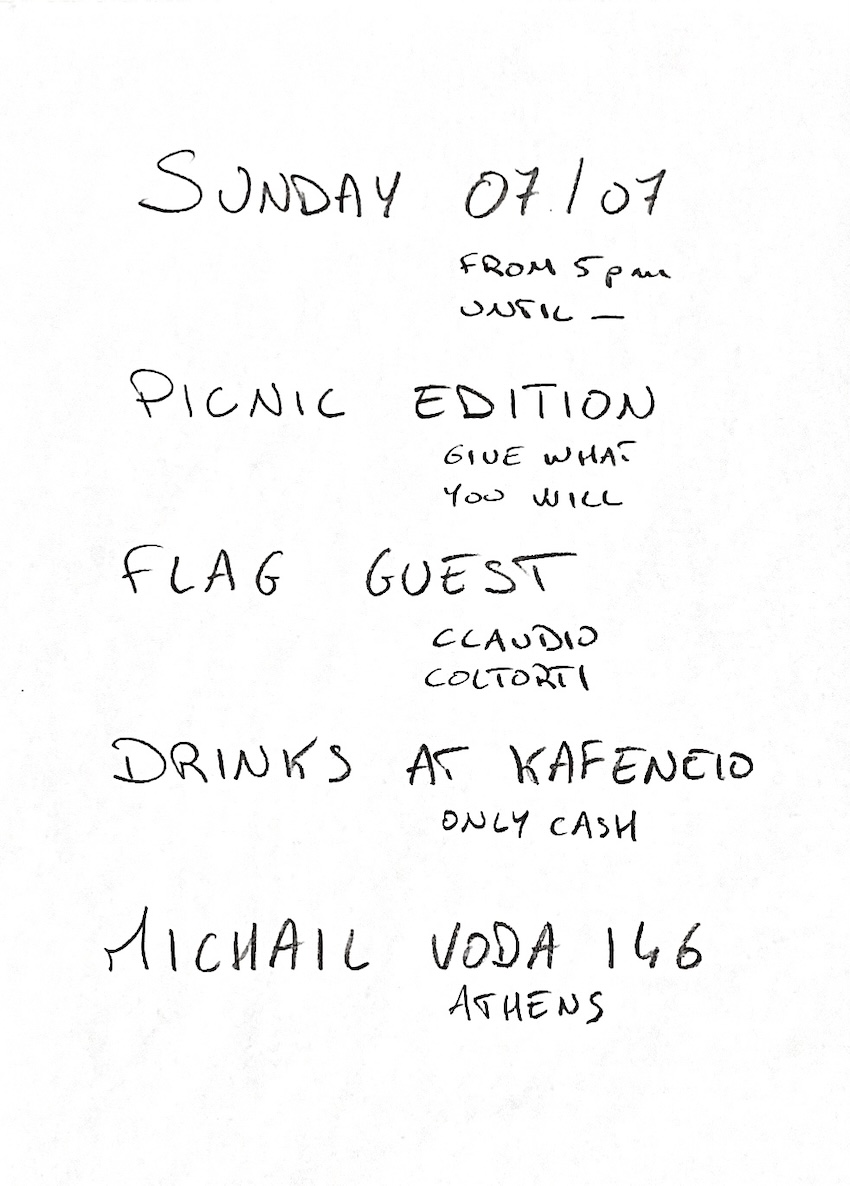 SUNDAY 07/07
FROM 5pm
UNTIL —
PICNIC EDITION
GIVE WHAT
YOU WILL
FLAG GUEST
CLAUDIO
COLTORTI
DRINKS AT KAFENEIO
ONLY CASH
MICHAIL VODA 146
ATHENS